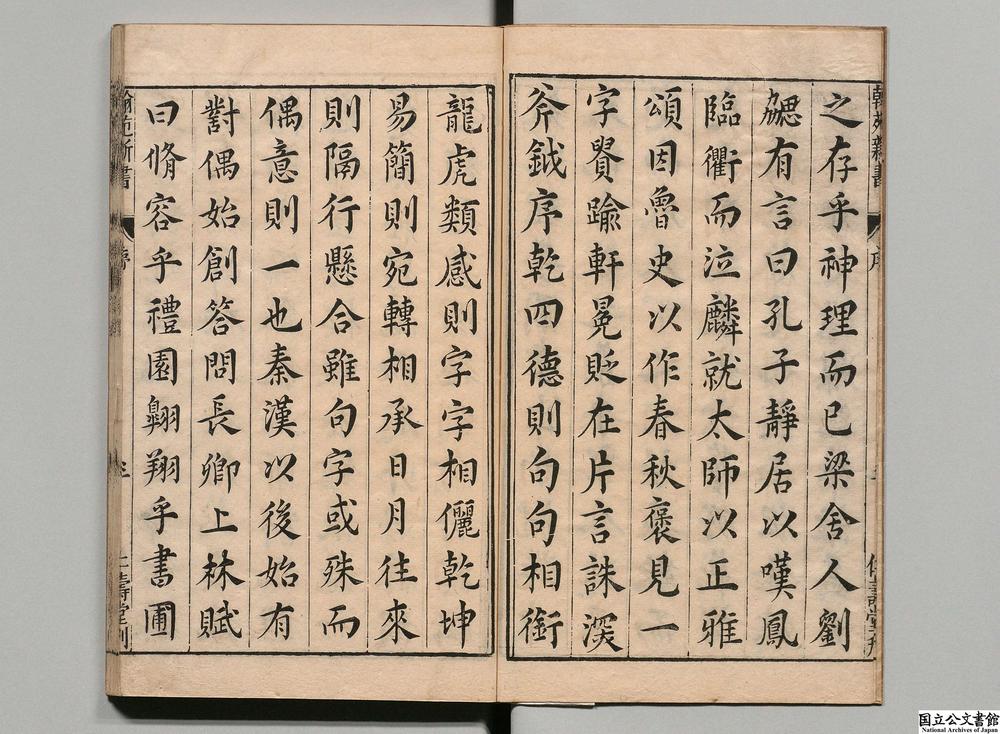 之存乎神理而已梁舍人劉
勰有言曰孔子靜居以嘆鳳
臨衢而泣麟就太師以正雅
頌因魯史以作春秋褒見一
字貴踰軒冕貶在片言誅深
斧鉞序乾四德則句句相銜
龍虎類感則字字相儷乾坤
易簡則宛轉相承日月往來
則隔行懸合雖句字或殊而
偶意則一也秦漢以後始有
對偶始創答問長卿上林賦
曰脩容乎禮園翱翔乎書圃
翰苑新書
序
仁壽堂刊
国立公文書館
National Archives of Japan